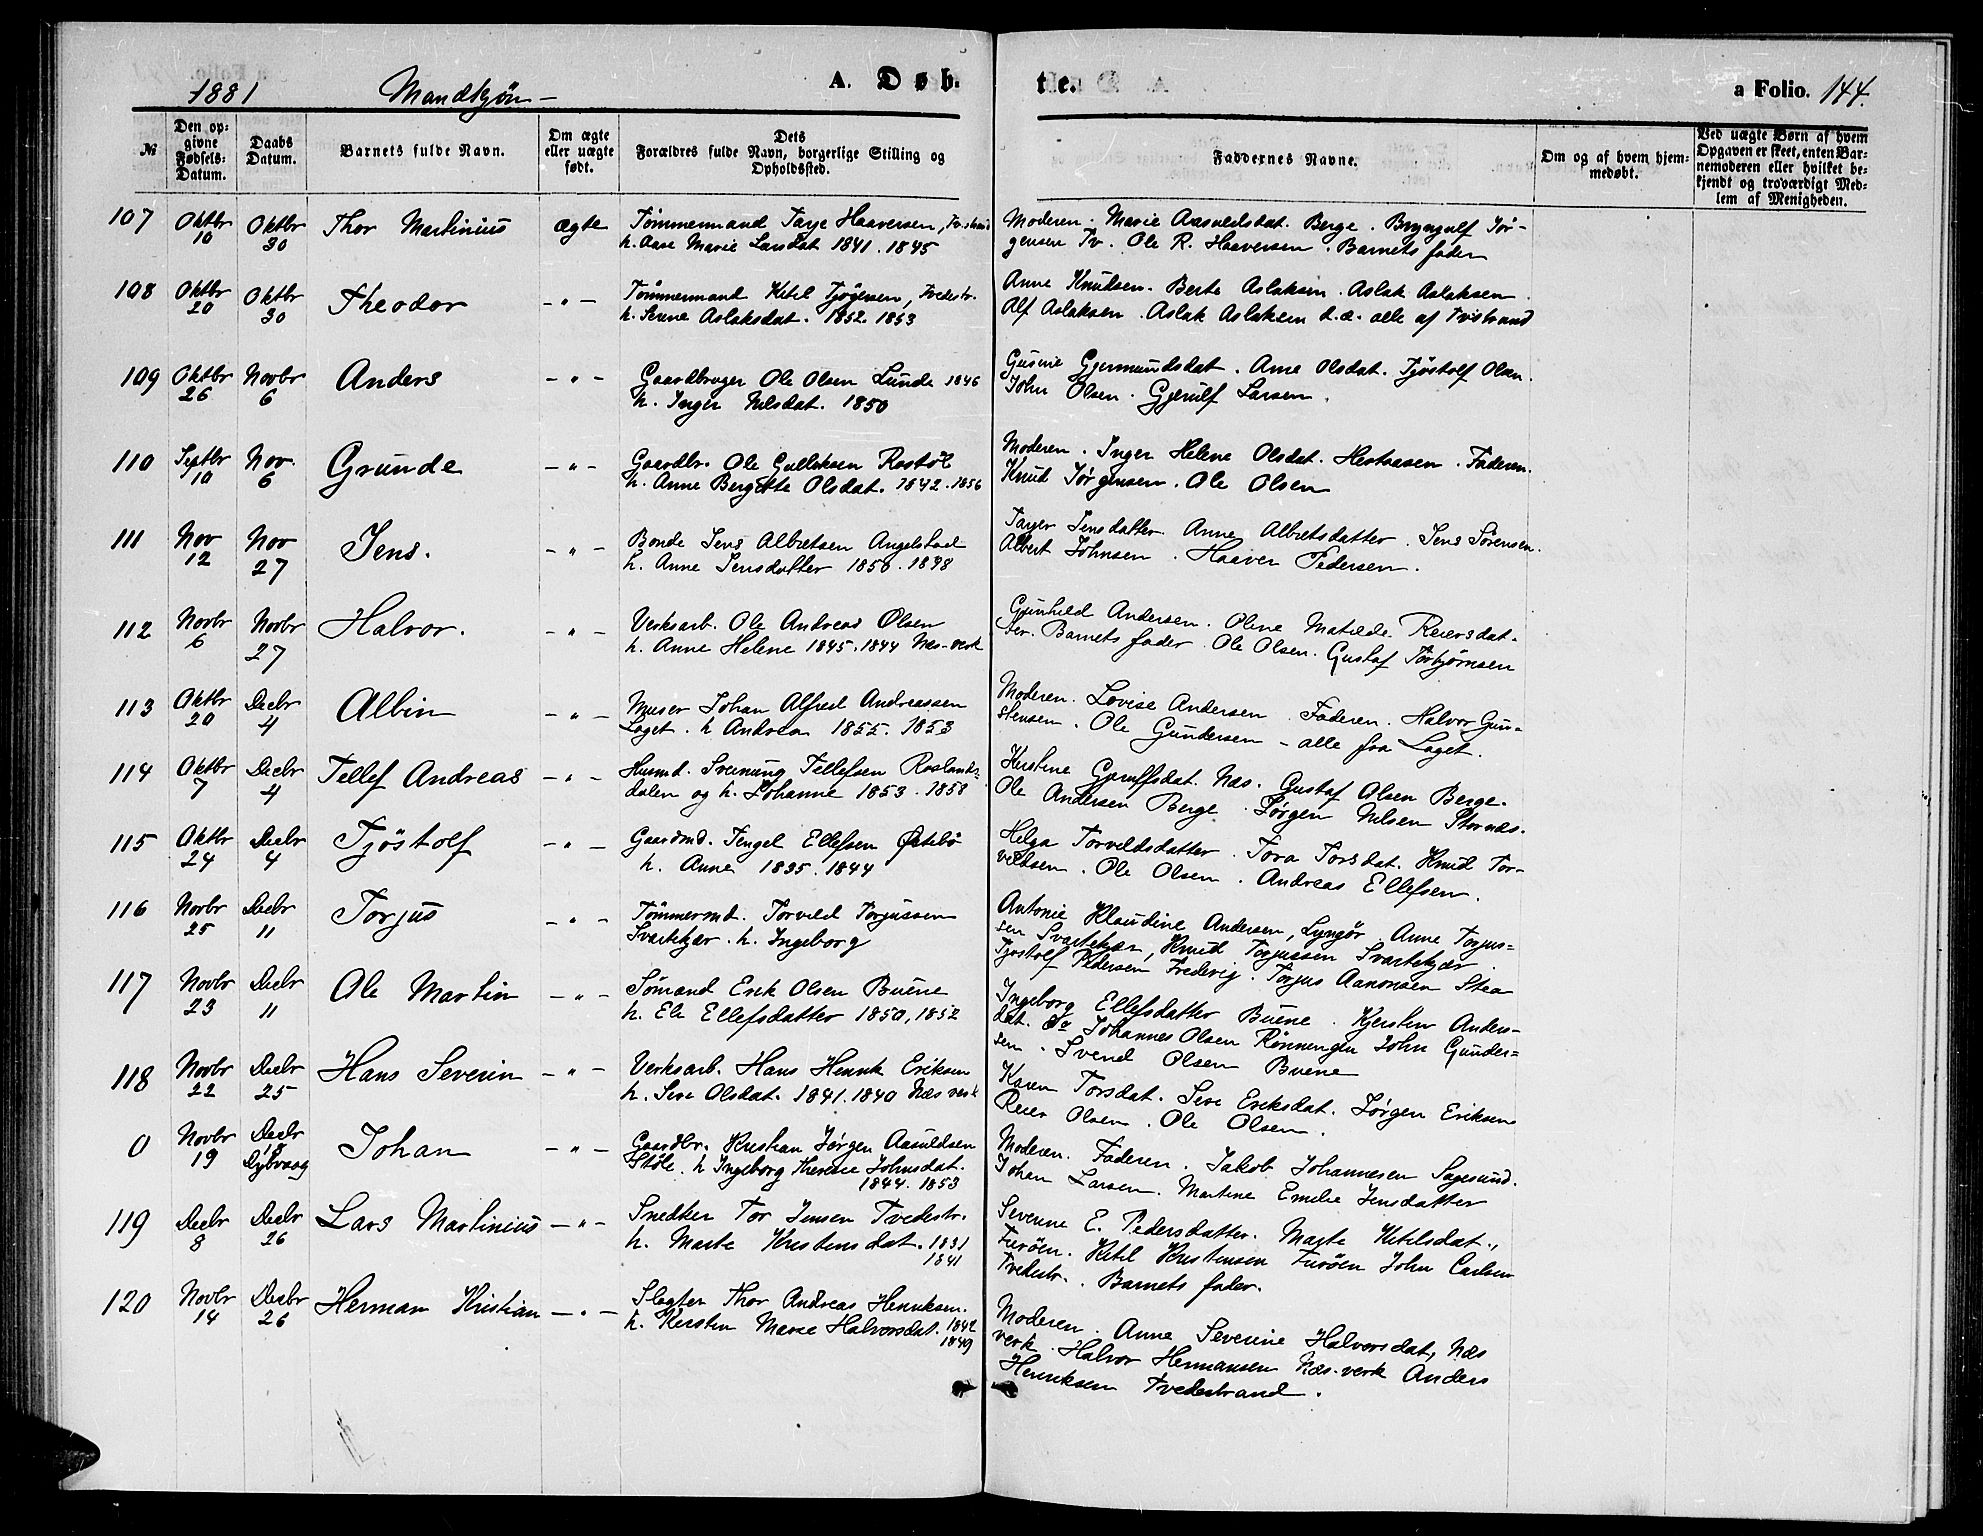 1881 Mandkjøn - A. Døb- te. a Folio. 144.
№ Den opgivne Fødsels-Datum. Daabs Datum. Barnets fulde Navn. Om ægte eller uægte født. Dets Forældres fulde Navn, borgerlige Stilling og Opholdssted. Faddernes Navne. Om og af hvem hjemmedøbt. Ved uægte Børn af hvem Opgaven er skeet, enten Barnemoderen eller hvilket bekjendt og troværdigt Medlem af Menigheden.
107 Oktbr 10 Oktbr 30 Thor Martinius ægte Tømmermand Tarje Haaversen,
h. Aase Marie Larsdat 1841. 1845
Moderen. Marie Aasuldsdat. Berge. Bryngulf Jør-
gensen Tv. Ole R. Haaversen. Barnets fader
108 Oktbr 20 Oktbr 30 Theodor - " - Tømmermand Ketil Tjøgersen, Tvedestr.
h. Serine Aslaksdat. 1852. 1853
Anne Knudsen. Berte Aslaksen. Aslak Aslaksen.
Alf Aslaksen. Aslak Aslaksen d.æ. alle af Tvistrand
109 Oktbr 26 Novbr 6 Anders - " - Gaardbruger Ole Olsen Lunde 1846
h. Inger Nilsdat. 1850
Gusine Gjermundsdat. Anne Olsdat. Tjøstolf Olsen.
John Olsen. Gjerulf Larsen.
110 Septbr 10 Nov. 6 Grunde - " - Gaardbr. Ole Gulleksen Rostøl
h. Anne Bergitte Olsdat. 1842. 1856
Moderen. Inger Helene Olsdat. Hestaasen. Faderen.
Knud Jørgensen. Ole Olsen
111 Nov 12 Nov 27 Jens. - " - Bonde Jens Albretsen Angelstad
h. Anne Jensdatter 1850. 1848
Tarjer Jensdatter Anne Albretsdatter. Jens Sørensen.
Albert Johnsen. Haaver Pedersen.
112 Novbr 6 Novbr 27 Halvor. - " - Verksarb. Ole Andreas Olsen
h. Anne Helene 1845. 1844 Næs-verk
Gunhild Andersen. Oline Matilde Reiersdat-
ter. Barnets fader. Ole Olsen. Gustaf Torbjørnsen
113 Oktbr 20 Decbr 4 Albin - " - Murer Johan Alfred Andreassen
Laget. h Andrea 1855. 1853
Moderen. Lovise Andersen. Faderen. Halvor Gun-
stensen. Ole Gundersen - alle fra Laget.
114 Oktbr 7 Decbr 4 Tellef Andreas - " - Husmd. Sveinung Tellefsen Roslands-
dalen og h. Johanne 1853. 1858
Kirstine Gjerulfsdat. Næs. Gustaf Olsen Berge.
Ole Andersen Berge. Jørgen Nilsen Stornæs.
115 Oktbr 24 Decbr 4 Tjöstolf - " - Gaardmd. Tengel Ellefsen Østebö
h. Anne 1835. 1844
Helga Torveldsdatter. Tora Torsdat. Knud Tor-
veldsen. Ole Olsen. Andreas Ellefsen.
116 Novbr 25 Decbr 11 Torjus - " - Tömmermd. Torveld Torjussen
Svartekjær. h. Ingeborg
Antonie Klaudine Andersen, Lyngör. Anne Torjus-
sen Svartekjær, Knud Torjussen Svartekjær.
Tjostolf Pedersen Fredevig. Torjus Aanonsen Stea
117 Novbr 23 Decbr 11 Ole Martin - " - Sömand Erik Olsen Buene
h. Eli Ellefsdatter 1850, 1852
Ingeborg Ellefsdatter Buene. Kjersten Anders-
dat. do Johannes Olsen Rönningen John Gunder-
sen. Svend Olsen Buene
118 Novbr 22 Decbr 25 Hans Severin - " - Verksarb. Hans Henrik Eriksen
h. Siri Olsdat. 1841. 1840 Næs verk
Karen Torsdat. Siri Eriksdat. Jørgen Eriksen
Reier Olsen. Ole Olsen.
0 Novbr 19 Decbr 18 Dybvaag Johan - " - Gaardbr. Kristian Jørgen Aasuldsen
Støle. h Ingeborg Therese Johnsdat.
1844. 1853
Moderen. Faderen. Jakob Johannesen Sagesund.
Johan Larsen. Martine Emelie Jensdatter
119 Decbr 8 Decbr 26 Lars Martinius - " - Snedker Tor Jensen Tvedestr.
h. Marte Kristensdat. 1831
1841
Severine E. Pedersdatter. Marte Ketilsdat.,
Furöen. Ketil Kristensen Furöen John Carlsen
Tvedestr. Barnets fader.
120 Novbr 14 Decbr 26 Herman Kristian - " - Slagter Thor Andreas Henriksen.
h. Kersten Marie Halvorsdat. 1842
1849
Moderen. Anne Severine Halvorsdat, Næs
verk. Halvor Hermansen Næs-verk Anders
Henriksen Tvedestrand.